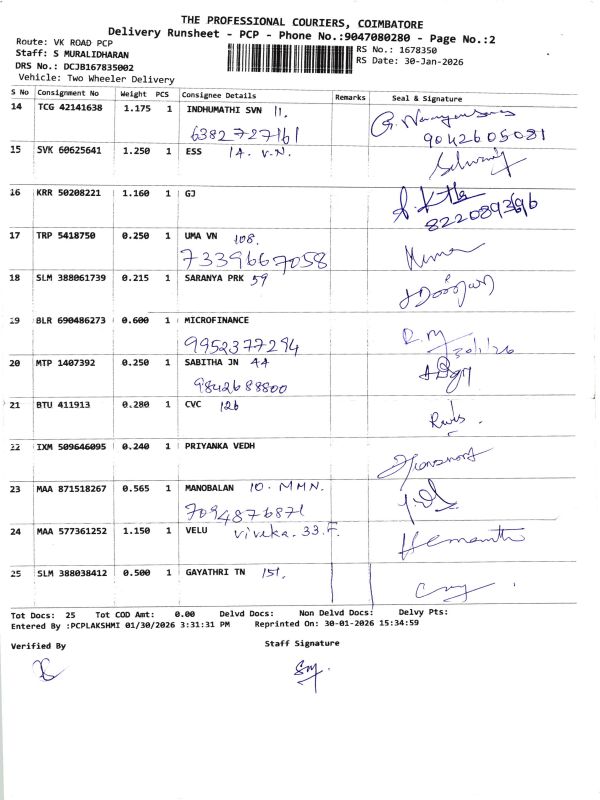 THE PROFESSIONAL COURIERS, COIMBATORE
Delivery Runsheet - PCP - Phone No.:9047080280 - Page No.:2
Route: VK ROAD PCP
Staff: S MURALIDHARAN
DRS No.: DCJB167835002
Vehicle: Two Wheeler Delivery
RS No.: 1678350
RS Date: 30-Jan-2026
S No Consignment No Weight PCS Consignee Details Remarks Seal & Signature
14 TCG 42141638 1.175 1 INDHUMATHI SVN 11.
6382727161
9042605081
15 SVK 60625641 1.250 1 ESS 14. V.N.
16 KRR 50208221 1.160 1 GJ
17 TRP 5418750 0.250 1 UMA VN 108.
7339667058
18 SLM 388061739 0.215 1 SARANYA PRK 59
19 BLR 690486273 0.600 1 MICROFINANCE
9952377294
30/1/26
20 MTP 1407392 0.250 1 SABITHA JN 44
9842688800
21 BTU 411913 0.280 1 CVC 126
22 IXM 509646095 0.240 1 PRIYANKA VEDH
23 MAA 871518267 0.565 1 MANOBALAN 10. MMN.
7094876871
24 MAA 577361252 1.150 1 VELU Viveka. 33. F.
Hemanth
25 SLM 388038412 0.500 1 GAYATHRI TN 151.
Tot Docs: 25 Tot COD Amt: 0.00 Delvd Docs: Non Delvd Docs: Delvy Pts:
Entered By :PCPLAKSHMI 01/30/2026 3:31:31 PM Reprinted On: 30-01-2026 15:34:59
Verified By
Staff Signature